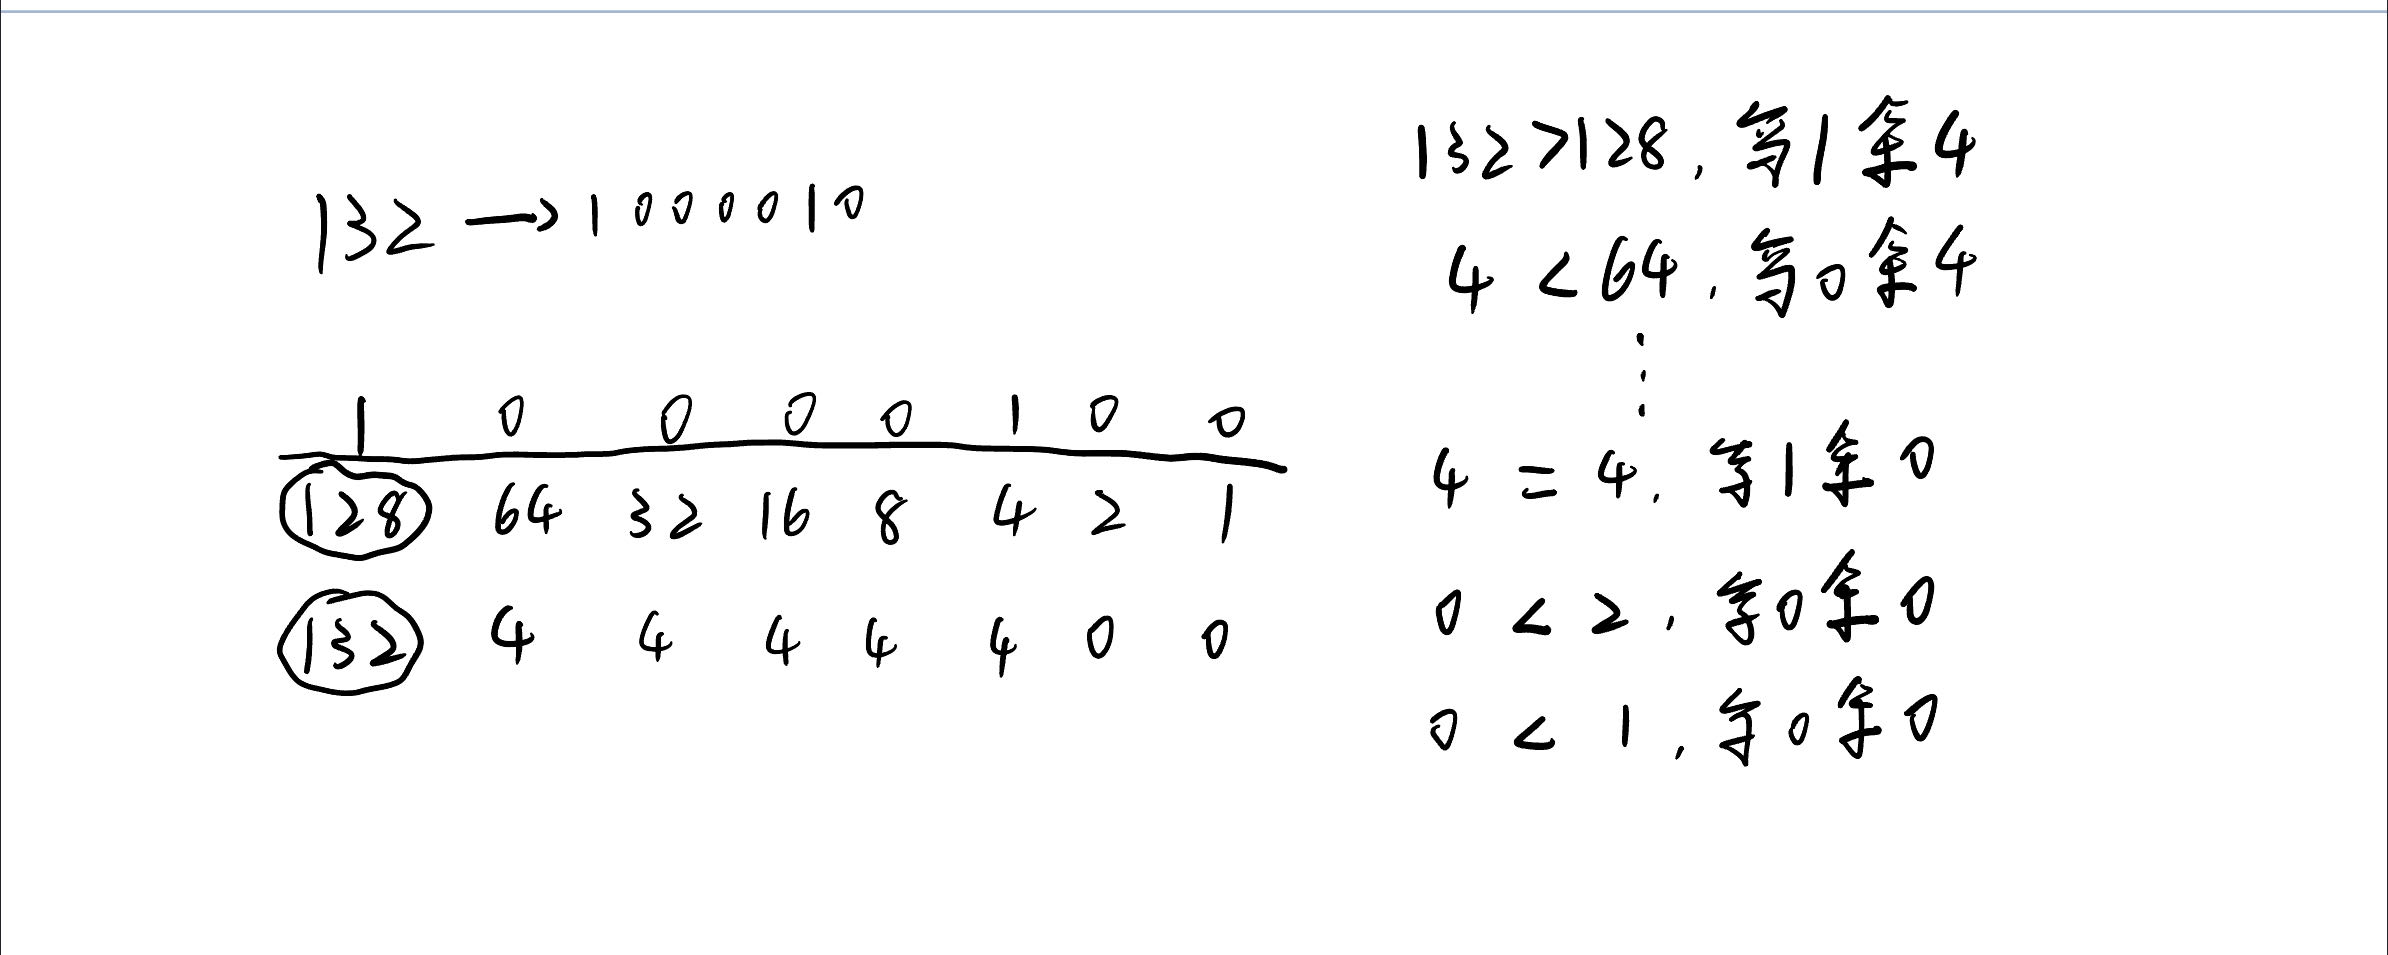 132 → 1000010
1 0 0 0 0 1 0 0
128 64 32 16 8 4 2 1
132 4 4 4 4 4 0 0
132>128, 写1余4
4 < 64, 写0余4
⋮
4 = 4, 写1余0
0 < 2, 写0余0
0 < 1, 写0余0